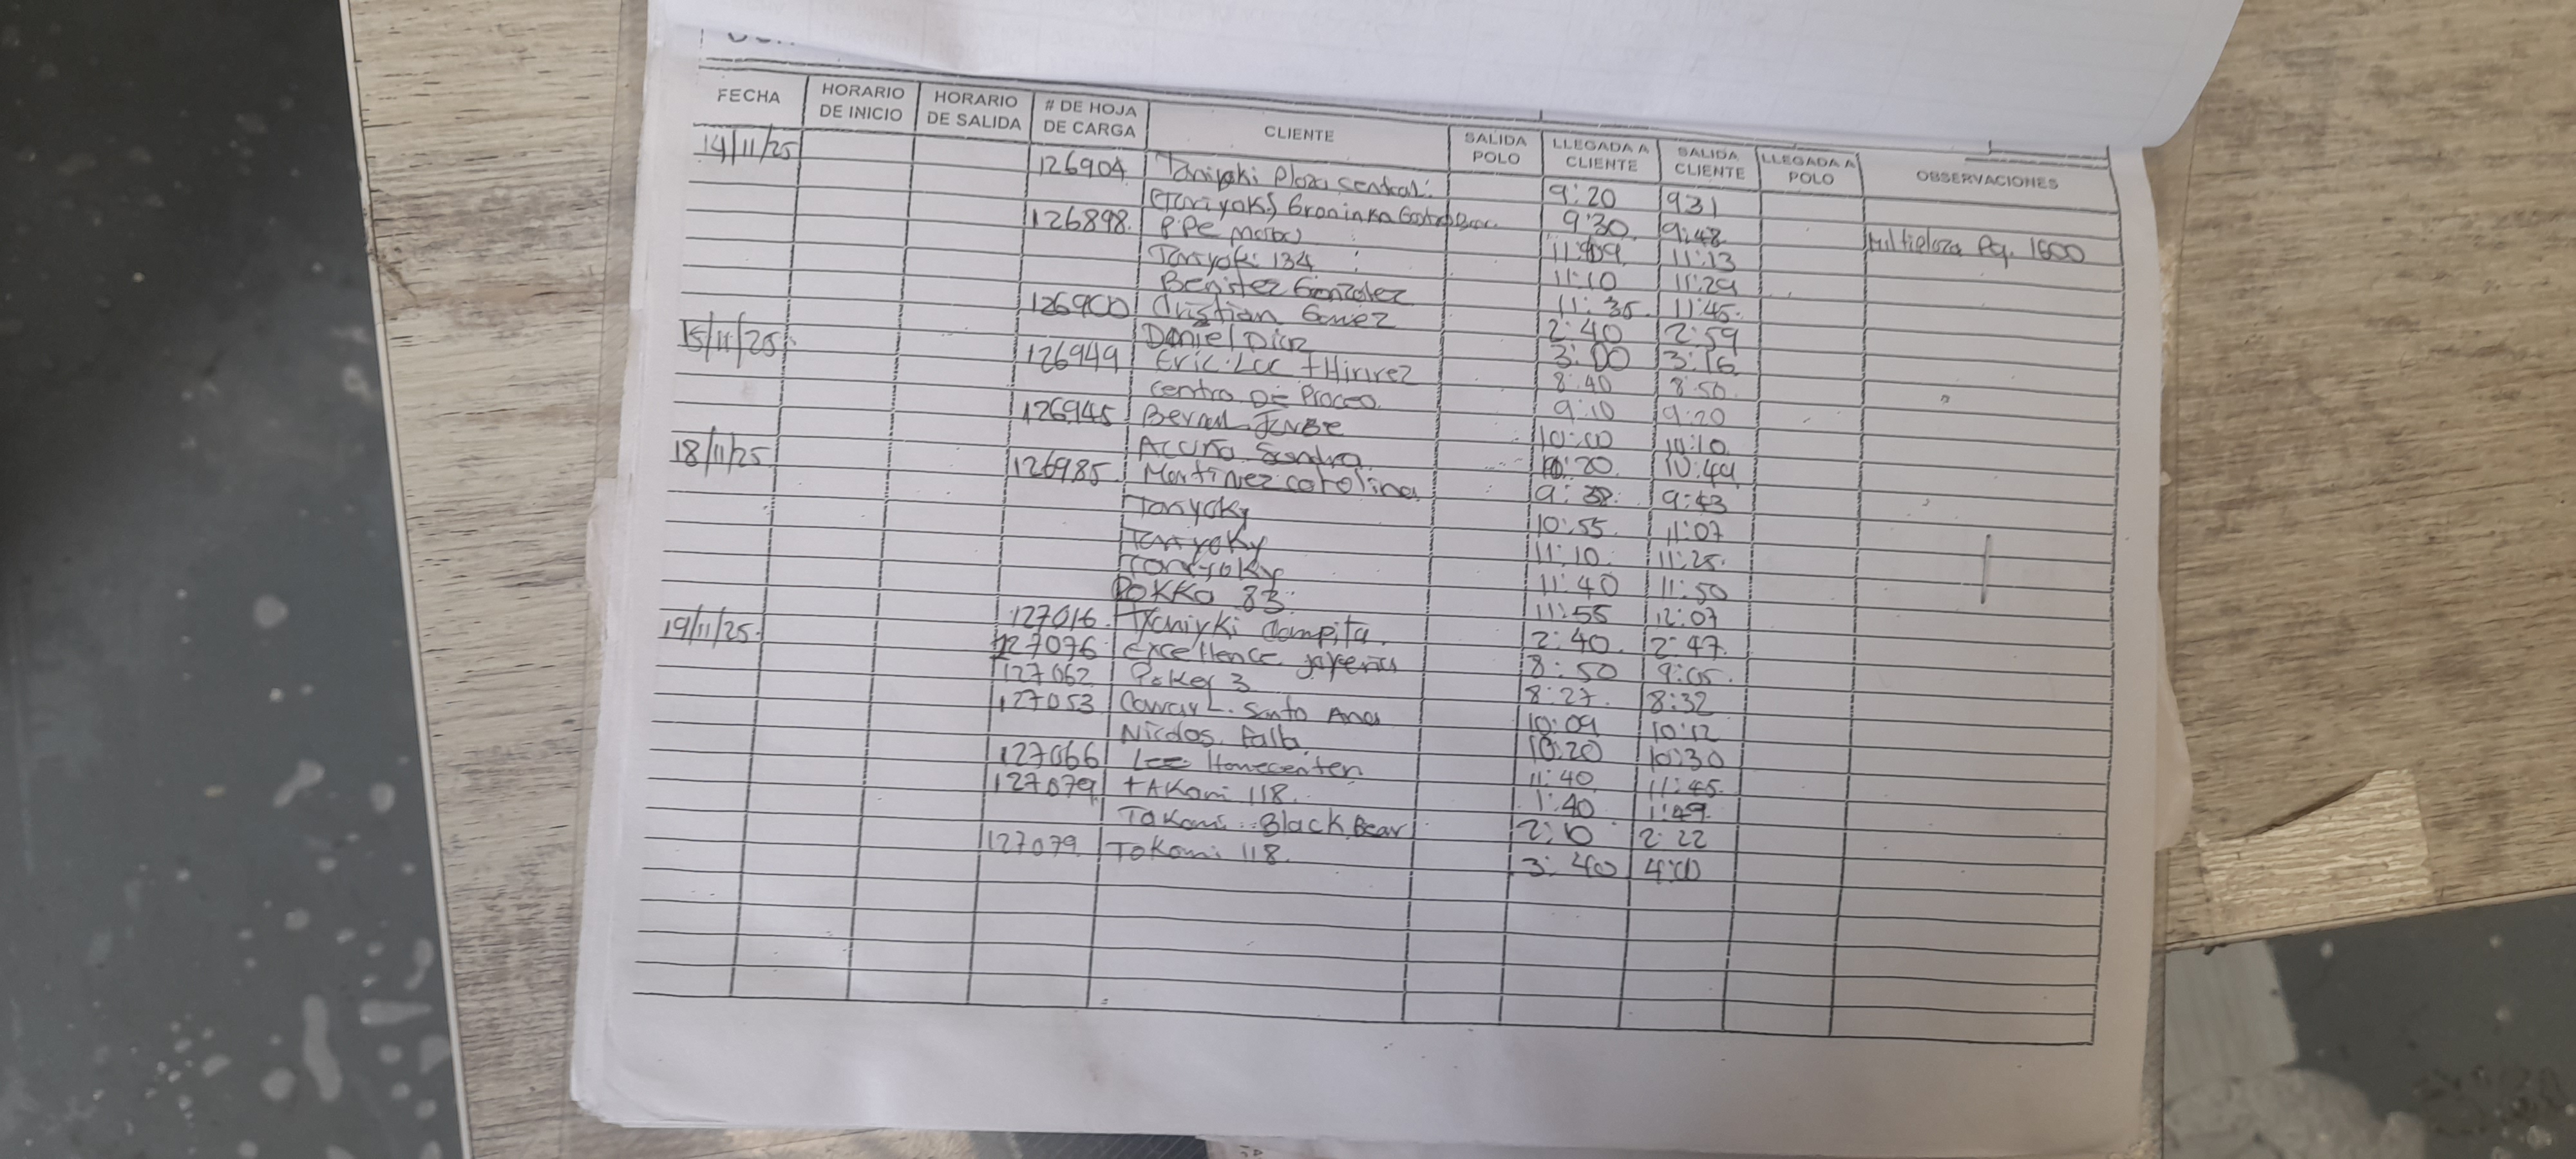 FECHA HORARIO DE INICIO HORARIO DE SALIDA # DE HOJA DE CARGA CLIENTE SALIDA POLO LLEGADA A CLIENTE SALIDA CLIENTE LLEGADA A POLO OBSERVACIONES
14/11/25 126904 9:20 931
9:30 9:48
126898 11:09 11:13 Multiplaza Pq. 1600
Tanyoki 134 11:10 11:29
Benitez Gonzalez 11:35 11:45
126900 Cristian Gomez 2:40 2:59
Daniel Diaz 3:00 3:16
15/11/25 126949 8:40 8:50
Centro DE Proceo 9:10 9:20
126945 10:00 10:10
Acuña Sandra 10:20 10:49
18/11/25 126985 Martinez carolina 9:38 9:43
Tanyoky 10:55 11:07
Tanyoky 11:10 11:25
Tanyoky 11:40 11:50
POKKO 83 11:55 12:07
127016 2:40 2:47
19/11/25 127076 Excellence 8:50 9:05
127062 Poker 3 8:27 8:32
127053 Santo Ana 10:09 10:12
Nicolas Falb 10:20 10:30
127066 Homecenter 11:40 11:45
127079 tAKomi 118 1:40 1:49
Takomi Black Bear 2:10 2:22
127079 Tokomi 118 3:40 4:00